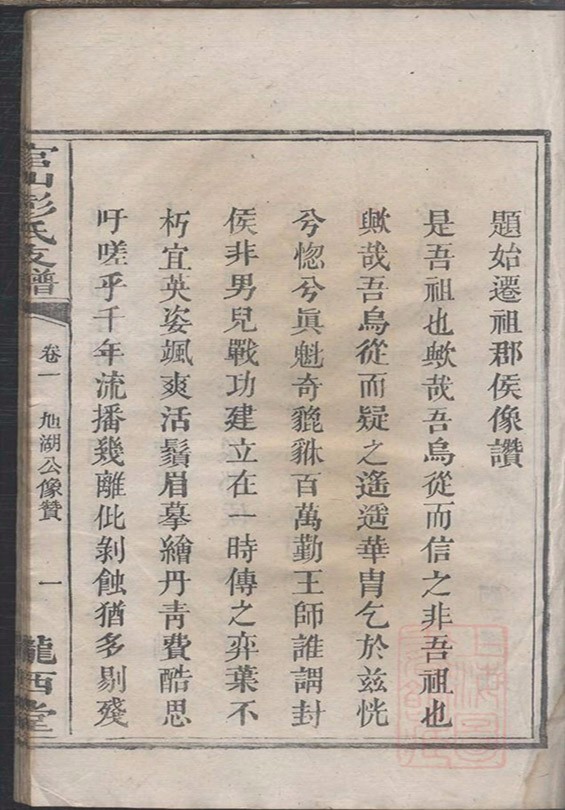 題始遷祖郡侯像讚
是吾祖也歟哉吾烏從而信之非吾祖也
歟哉吾烏從而疑之遙遙華胄乞於茲恍
兮惚兮眞魁奇貔貅百萬勤王師誰謂封
侯非男兒戰功建立在一時傳之弈葉不
朽宜英姿颯爽活鬚眉摹繪丹靑費酷思
吁嗟乎千年流播幾離仳剝蝕猶多剔殘
官山彭氏支譜
卷一
旭湖公像贊
一
隴西堂